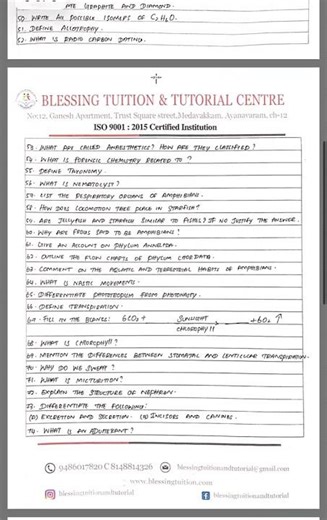 ATE GRAPHITE AND DIAMOND.
50. WRITE ALL POSSIBLE ISOMERS OF C2H6O.
51. DEFINE ALLOTROPHY.
52. WHAT IS RADIO CARBON DATING.
BLESSING TUITION & TUTORIAL CENTRE
No:12, Ganesh Apartment, Trust Square street, Medavakkam, Ayanavaram, ch-12
ISO 9001 : 2015 Certified Institution
53. WHAT ARE CALLED ANAESTHETICS? HOW ARE THEY CLASSIFIED?
54. WHAT IS FORENSIC CHEMISTRY RELATED TO ?
55. DEFINE TAXONOMY.
56. WHAT IS NEMATOCYST?
57. LIST THE RESPIRATORY ORGANS OF AMPHIBIANS.
58. HOW DOES LOCOMOTION TAKE PLACE IN STARFISH?
59. ARE JELLYFISH AND STARFISH SIMILAR TO FISHES? IF NO JUSTIFY THE ANSWER.
60. WHY ARE FROGS SAID TO BE AMPHIBIANS?
61. GIVE AN ACCOUNT ON PHYLUM ANNELIDA.
62. OUTLINE THE FLOW CHARTS OF PHYLUM CHORDATA.
63. COMMENT ON THE AQUATIC AND TERRESTRIAL HABITS OF AMPHIBIANS.
64. WHAT IS NASTIC MOVEMENTS.
65. DIFFERENTIATE PHOTOTROPISM FROM PHOTONASTY.
66. DEFINE TRANSPIRATION.
67. FILL IN THE BLANKS: 6CO2 + SUNLIGHT + 6O2 ↑
CHLOROPHYLL
68. WHAT IS CHLOROPHYLL?
69. MENTION THE DIFFERENCES BETWEEN STOMATAL AND LENTICULAR TRANSPIRATION.
70. WHY DO WE SWEAT?
71. WHAT IS MICTURITION?
72. EXPLAIN THE STRUCTURE OF NEPHRON.
73. DIFFERENTIATE THE FOLLOWING:
(a) EXCRETION AND SECRETION. (b) INCISORS AND CANINES.
74. WHAT IS AN ADULTERANT?
9486017820 C 8148814326 blessingtuitionandtutorial@gmail.com
www.blessingtuition.com
blessingtuitionandtutorial blessingtuitionandtutorial